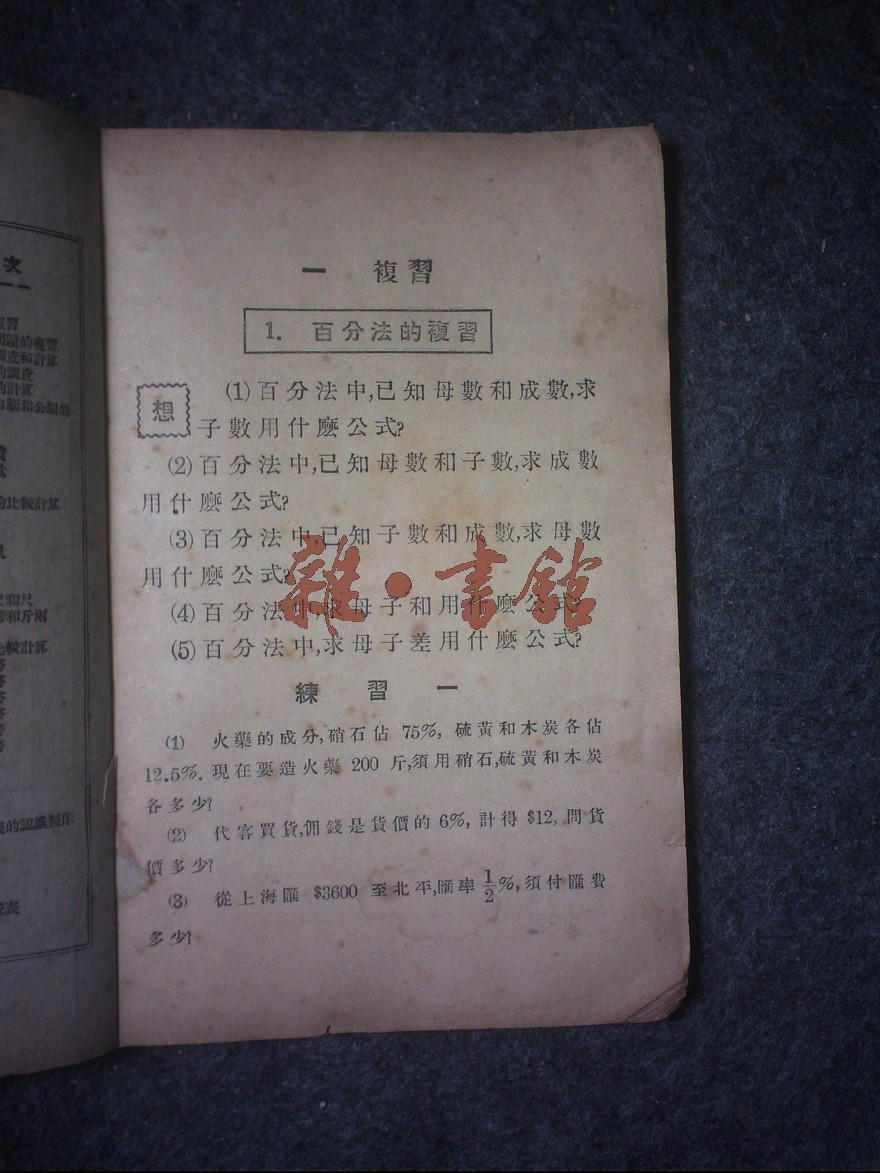 次
複習
問題的複習
調查和計算
的調查
的計算
市制和公制的
的比較計算
尺和尺
和斤兩
比較計算
的認識製作
一 複習
1. 百分法的複習
想
(1) 百分法中,已知母數和成數,求
子數用什麽公式?
(2) 百分法中,已知母數和子數,求成數
用什麽公式?
(3) 百分法中,已知子數和成數,求母數
用什麽公式?
(4) 百分法中,求母子和用什麽公式?
(5) 百分法中,求母子差用什麽公式?
雜·書館
練習一
(1) 火藥的成分,硝石佔 75%, 硫黃和木炭各佔
12.5%. 現在要造火藥 200 斤,須用硝石,硫黃和木炭
各多少?
(2) 代客買貨,佣錢是貨價的 6%, 計得 $12, 問貨
價多少?
(3) 從上海匯 $3600 至北平,匯率 1/2%,須付匯費
多少?